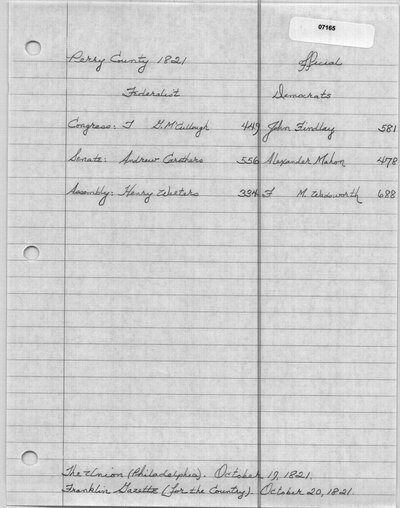 07165
Perry County 1821 Official
Federalist Democrats
Congress: T G. McCullough 449 John Findlay 581
Senate: Andrew Carothers 556 Alexander Mahon 478
Assembly: Henry Walters 334 F M. Wadsworth 688
The Union (Philadelphia). October 19, 1821.
Franklin Gazette (for the Country). October 20, 1821.